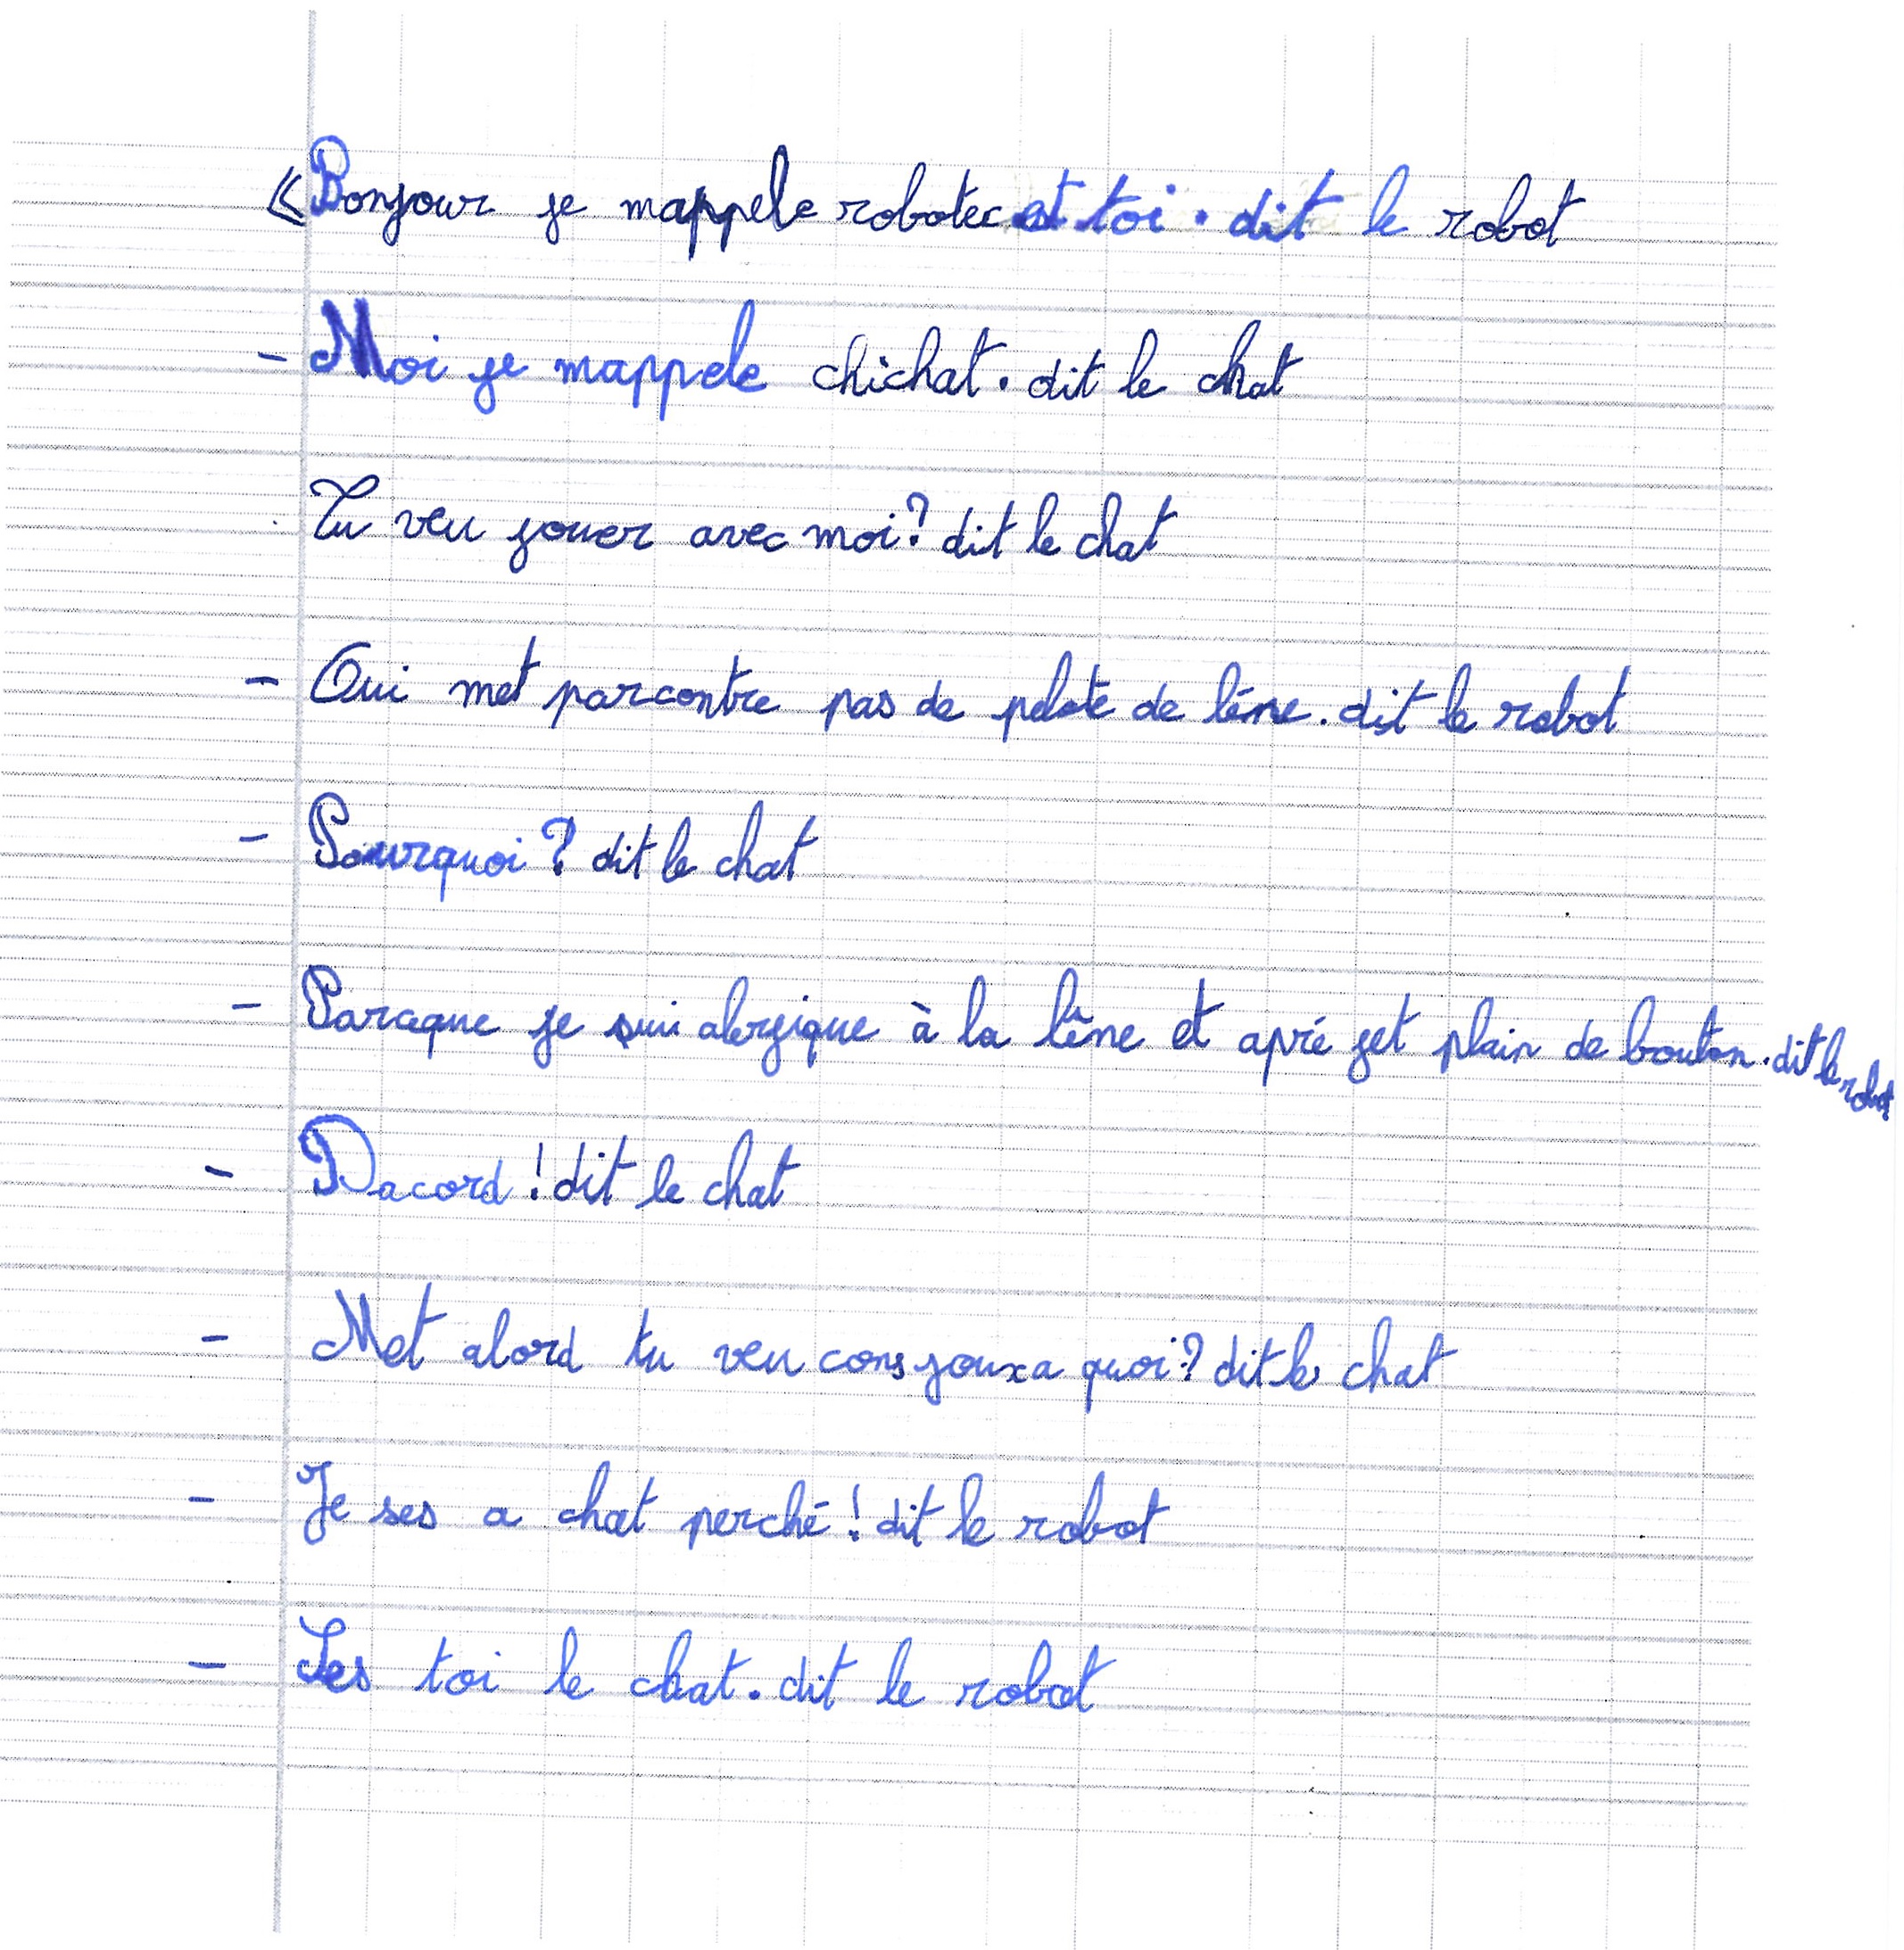 «Bonjour je mappele robotec et toi. dit le robot
- Moi je mappele chichat. dit le chat
Tu veu jouer avec moi? dit le chat
- Oui met parcontre pas de pelote de léne. dit le robot
- Pourquoi? dit le chat
- Parceque je sui alergique à la lène et apré jet plain de bouton. dit le robot
- Dacord! dit le chat
- Met alord tu veu cons joux a quoi? dit le chat
- Je ses a chat perché! dit le robot
- Ses toi le chat. dit le robot